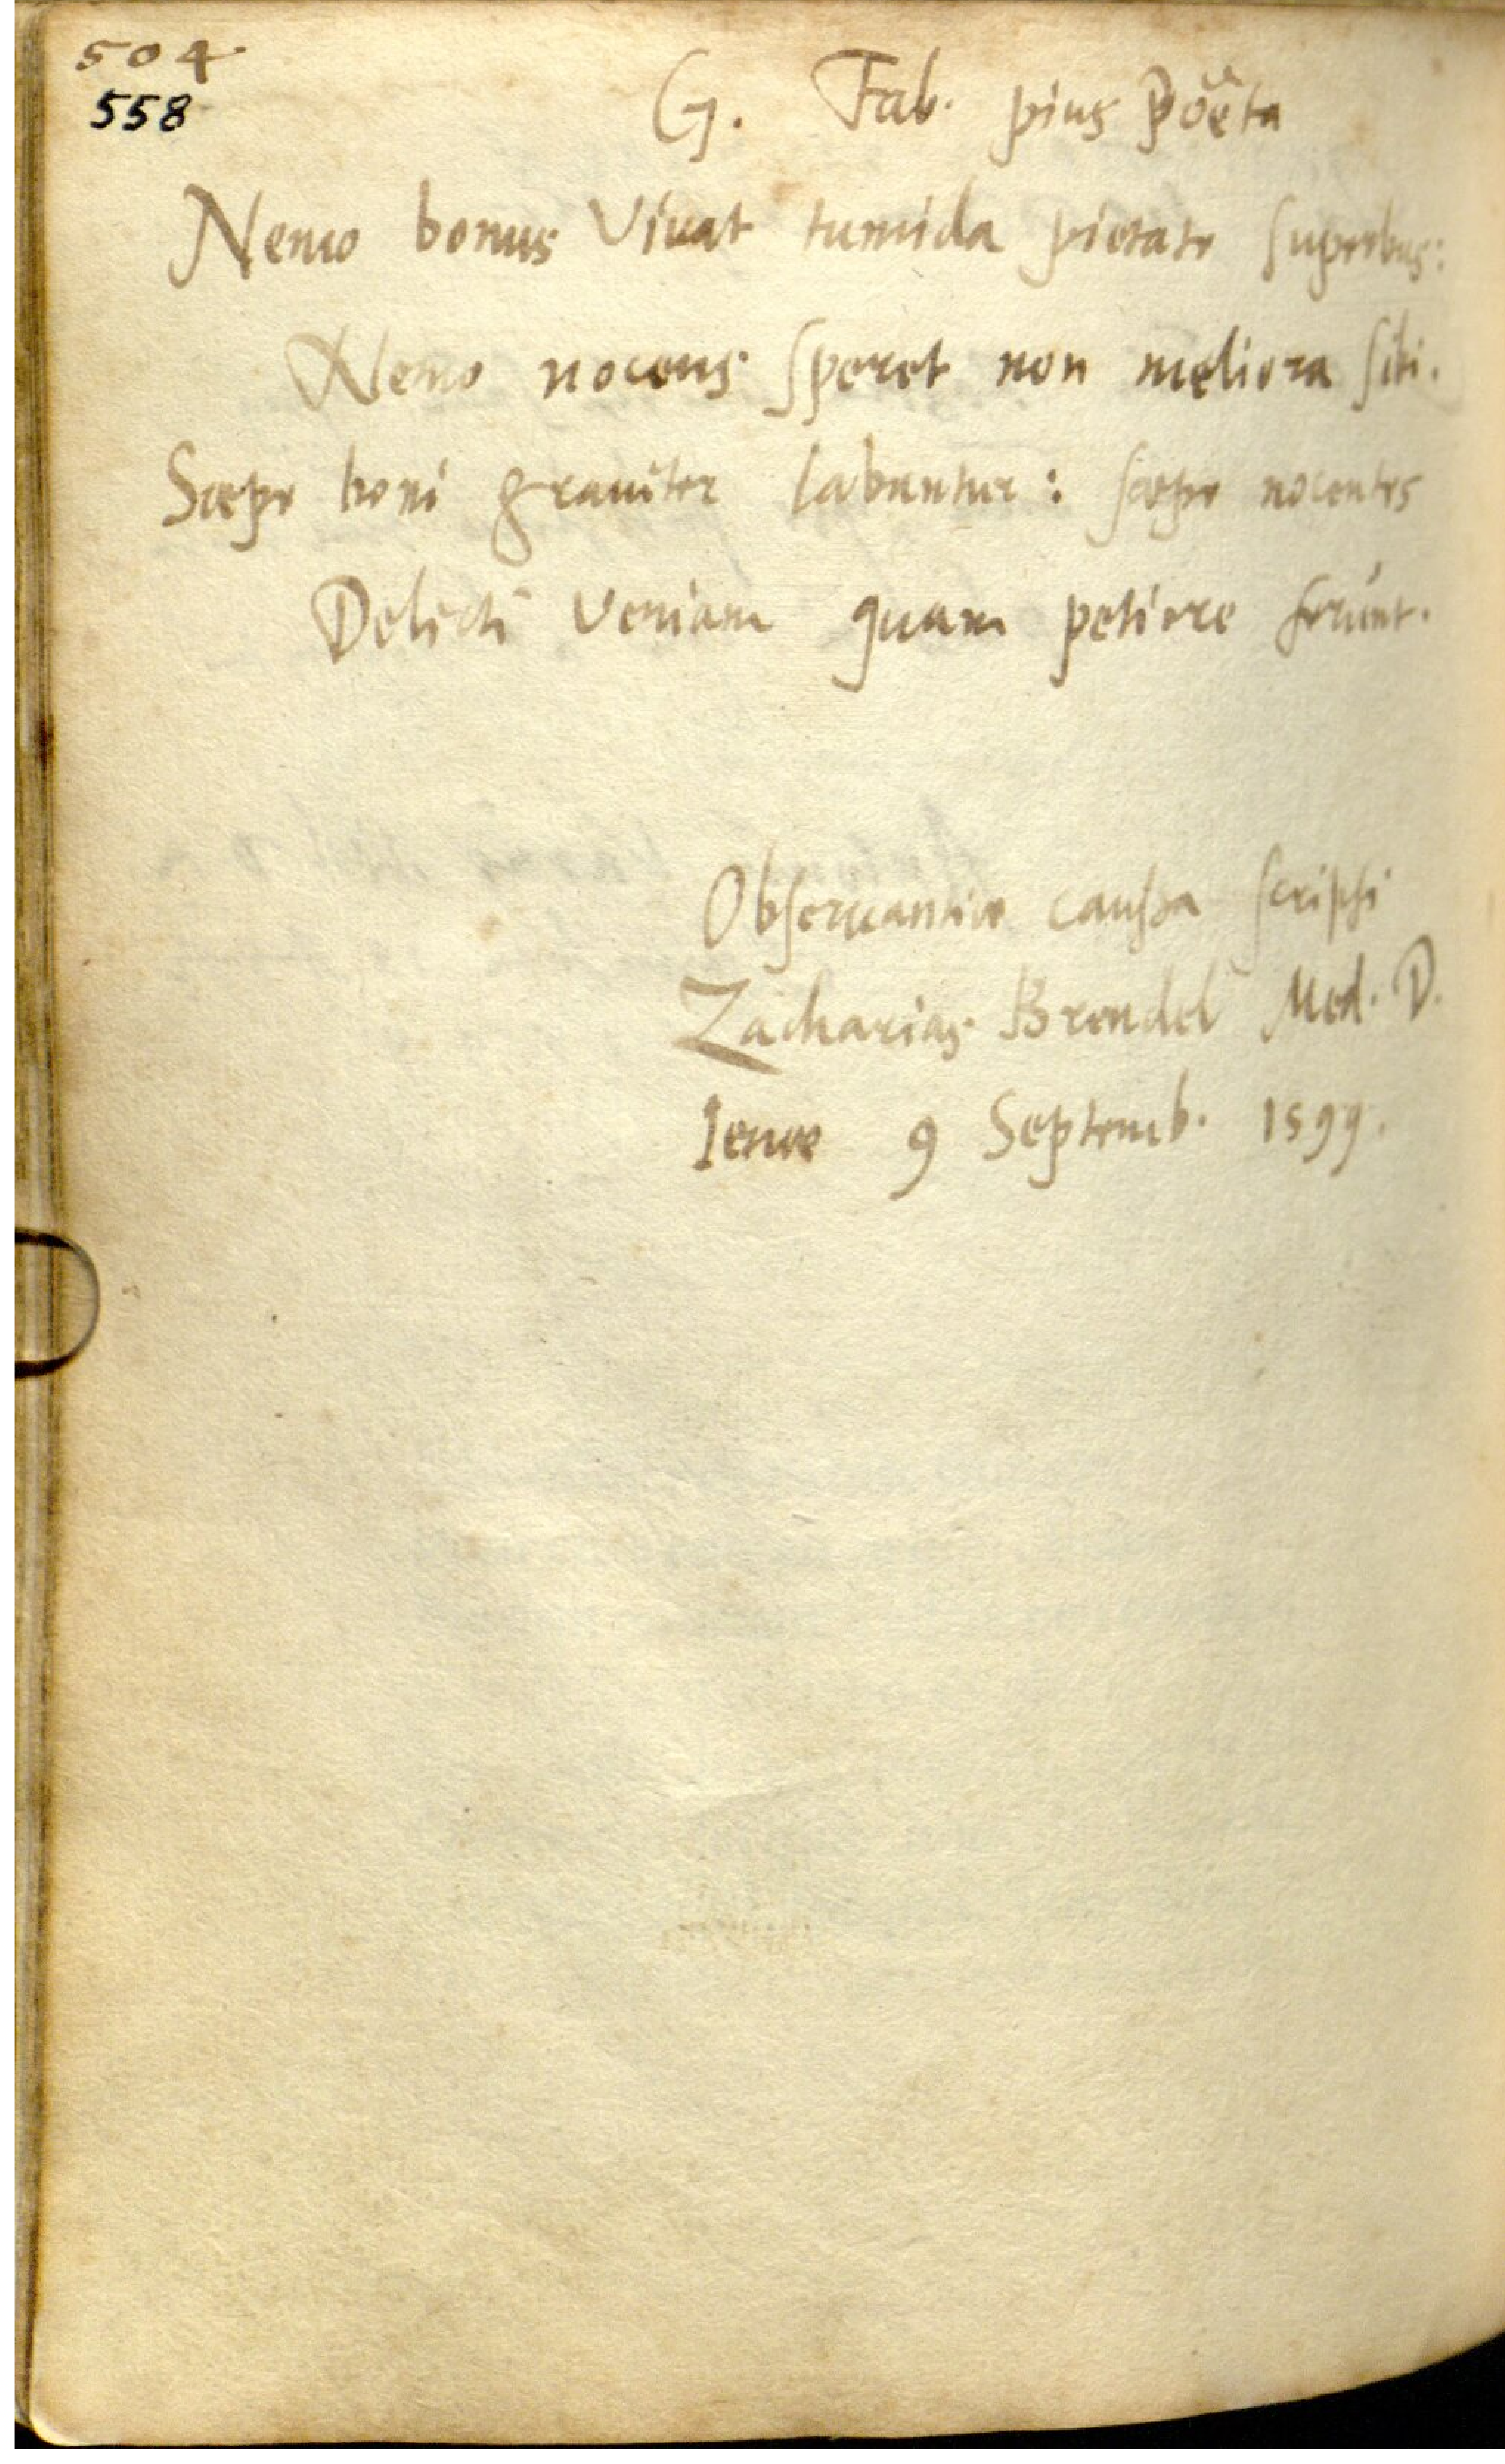 504
558
G. Fab. pius Poëta
Nemo bonus Vivat tumida pietate superbus:
Nemo nocens speret non meliora sibi.
Sæpe boni graviter labuntur: sæpe nocentes
Delicti veniam quam petiere ferunt.
Observantiæ caussa scripsi
Zacharias Brendel Med. D.
Ienæ 9 Septemb. 1599.